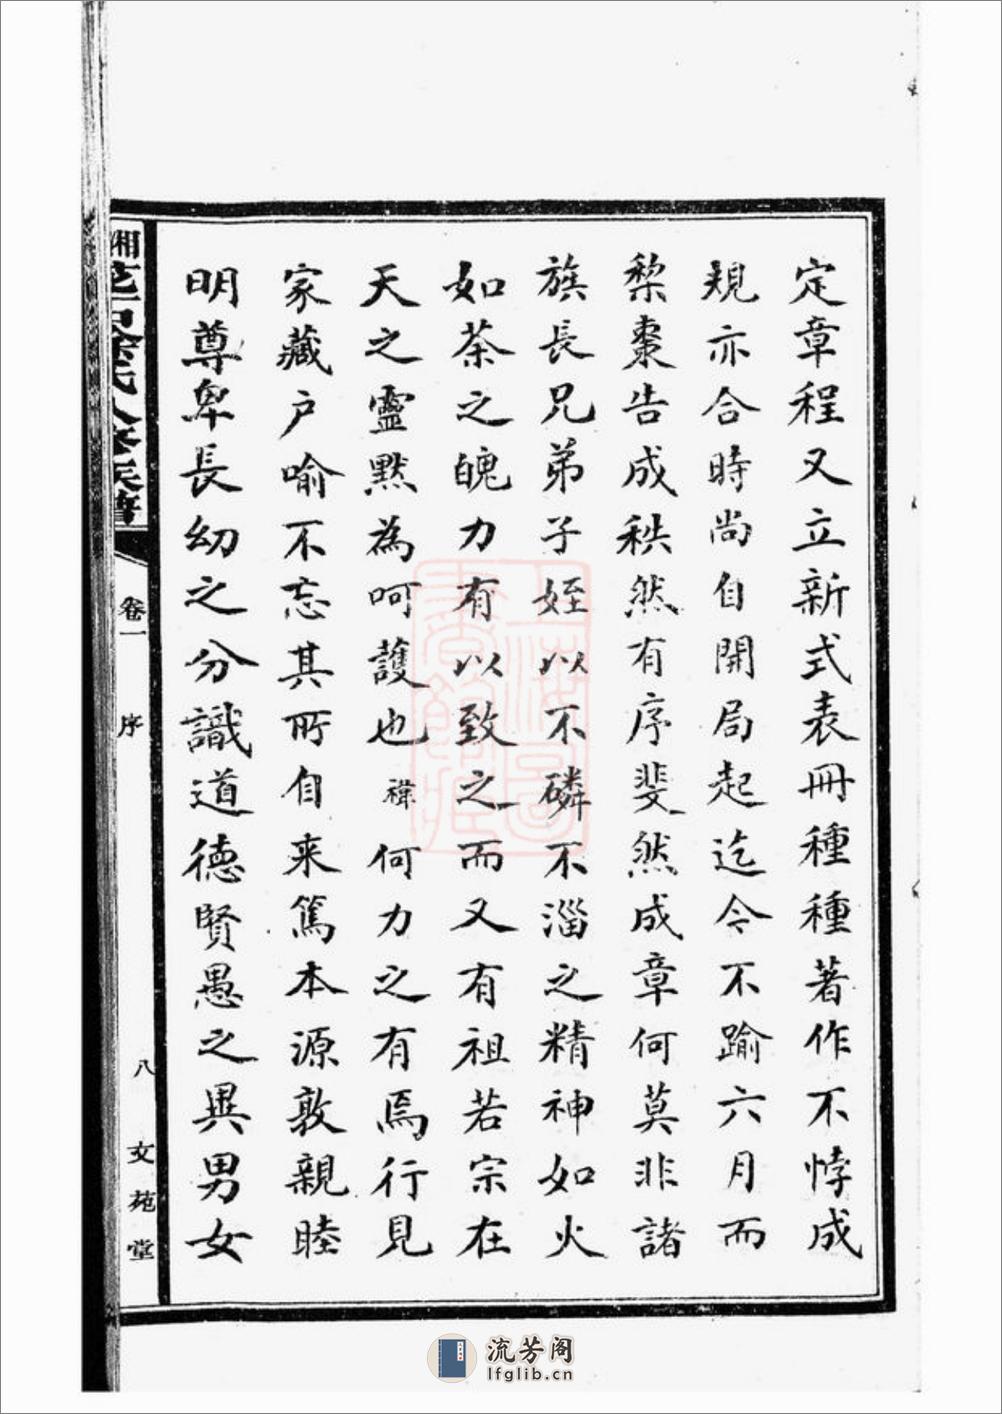 定章程又立新式表冊種種著作不悖成
規亦合時尚自開局起迄今不踰六月而
梨棗告成秩然有序斐然成章何莫非諸
族長兄弟子姪以不磷不淄之精神如火
如荼之魄力有以致之而又有祖若宗在
天之靈默為呵護也禕何力之有焉行見
家藏户喻不忘其所自来篤本源敦親睦
明尊卑長幼之分識道德賢愚之異男女
湘
氏
族譜
卷一
序
八
文苑堂
上海圖
書館藏
流芳阁
lfglib.cn